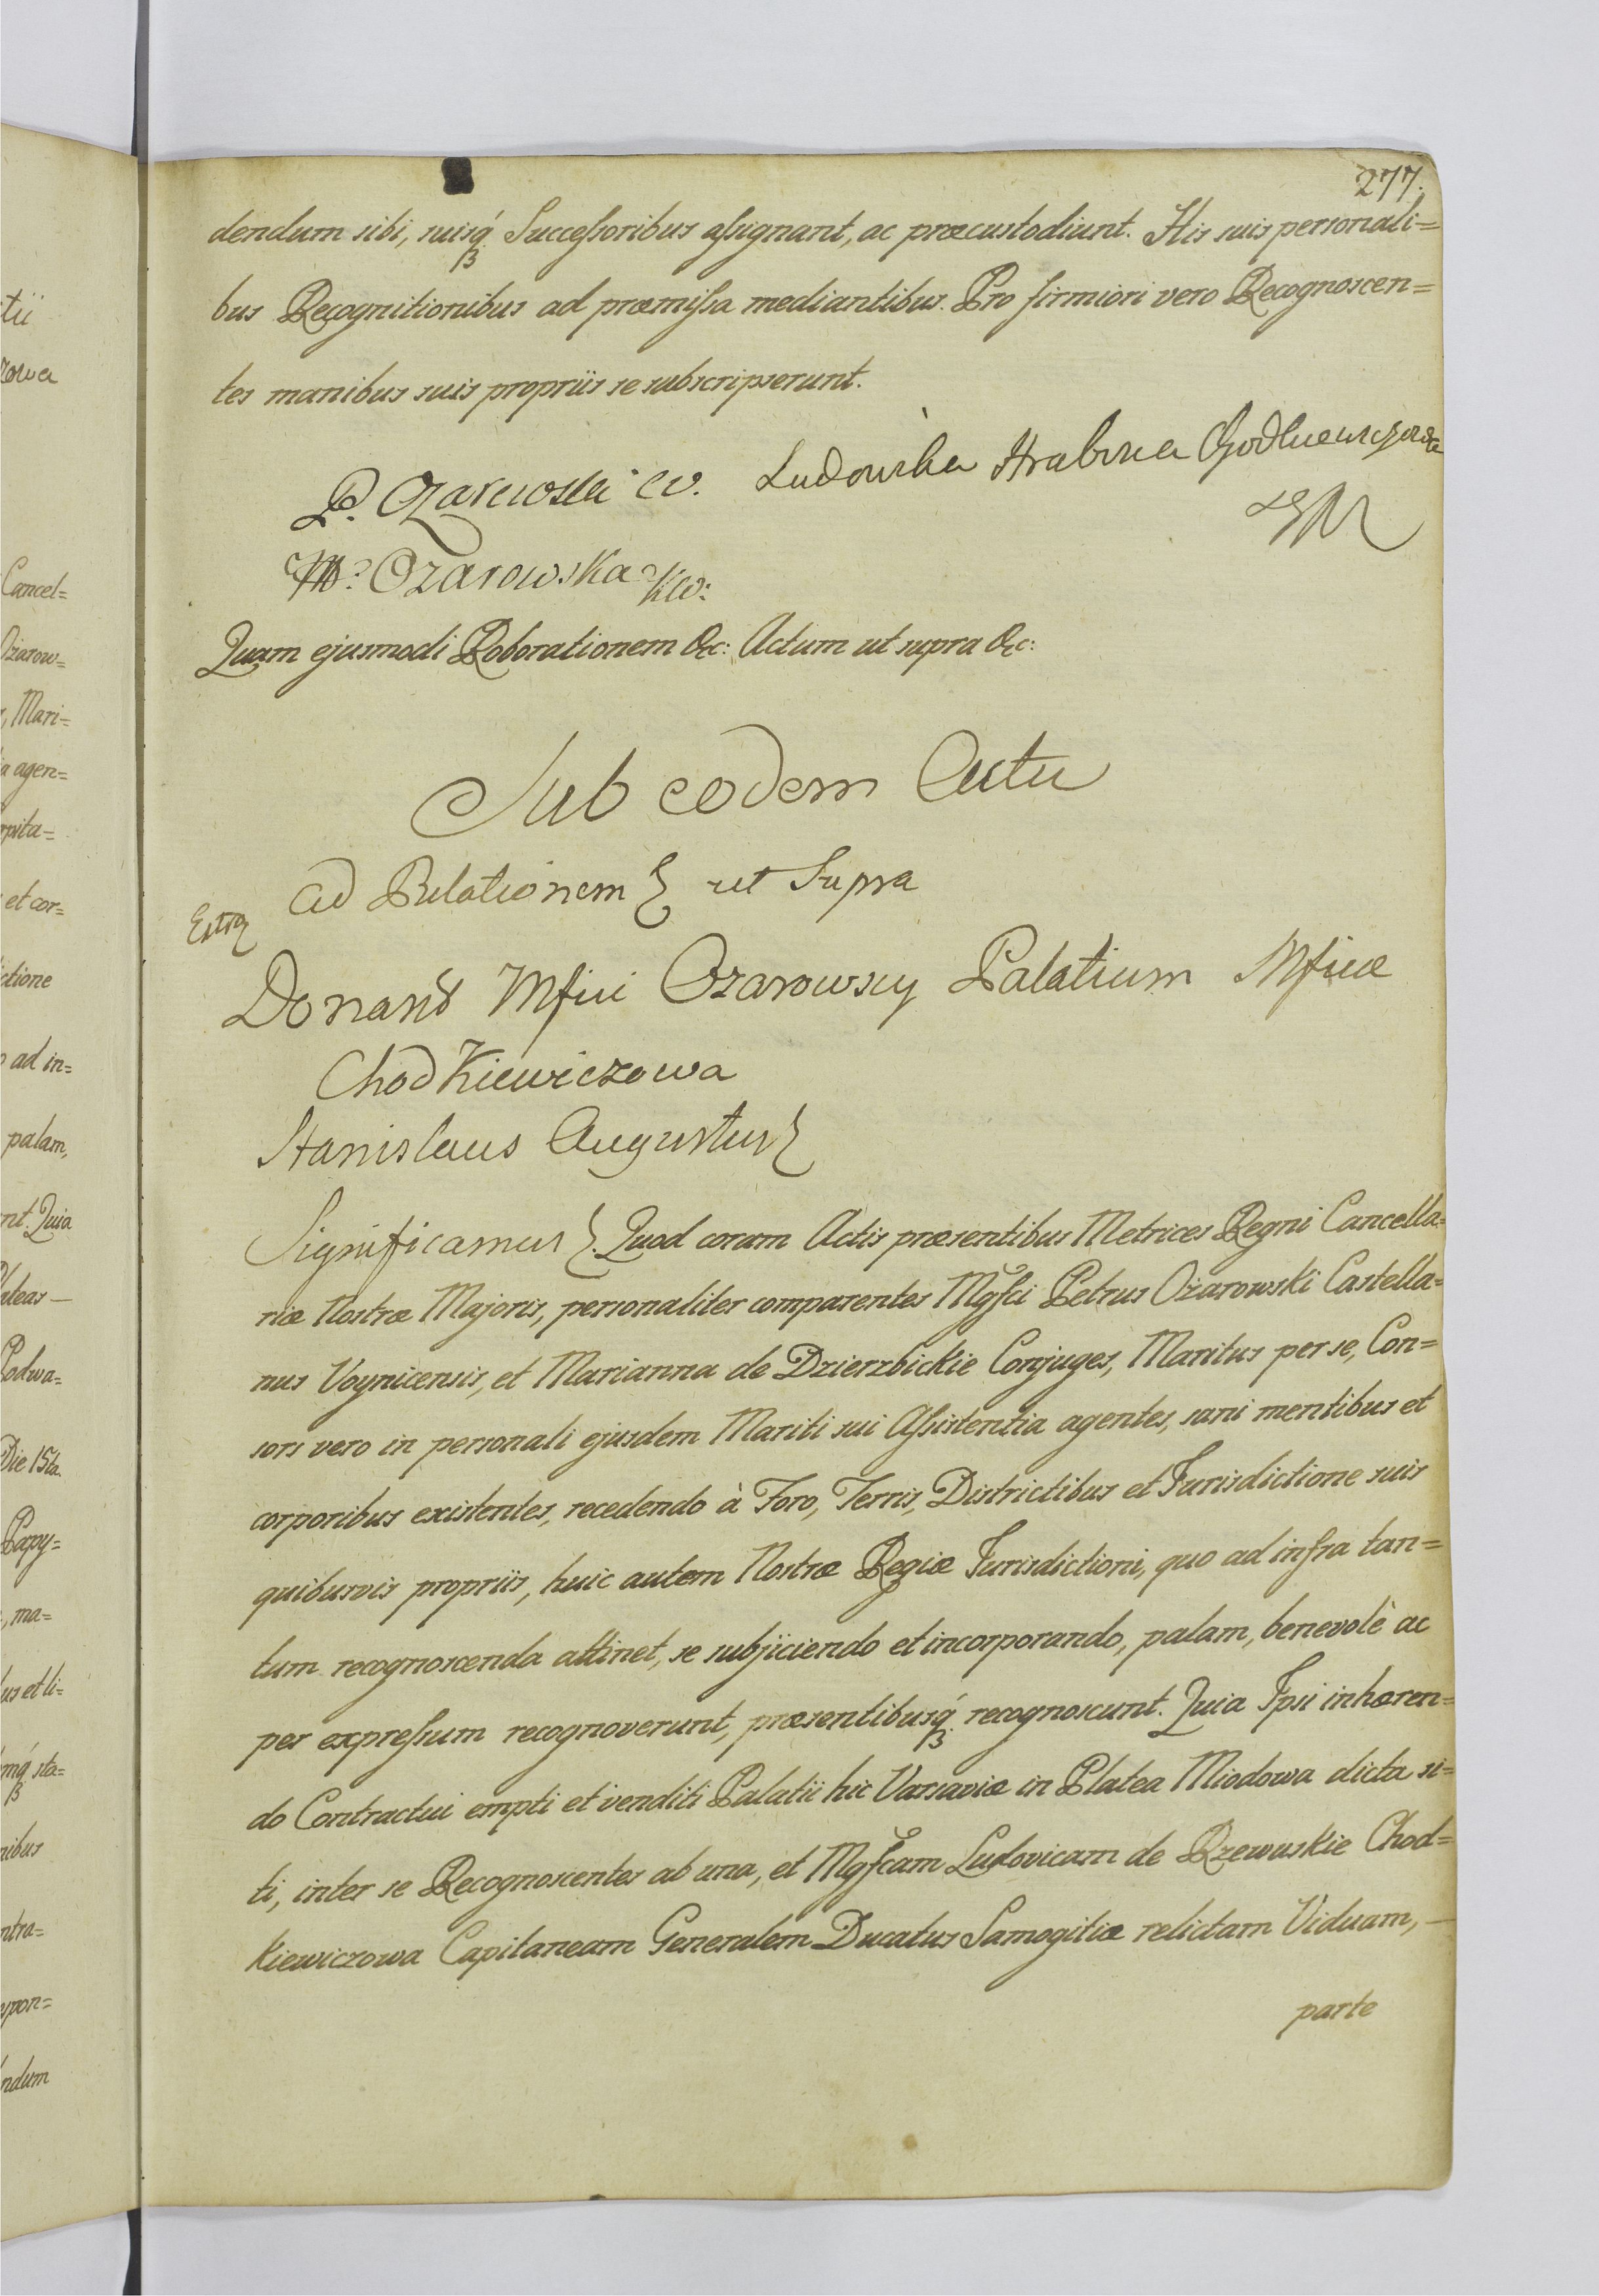 277.
dendum sibi, suisq́ꝫ Succeſsoribus aſsignant, ac præcustodiunt. His suis personali=
bus Recognitionibus ad præmiſsa mediantibus. Pro firmiori vero Recognoscen=
tes manibus suis propriis se subscripserunt.
P. Ozarowski
Ludowika Hrabina Chodkiewiczowa
M: Ozarowska KW:
Quam ejusmodi Roborationem &c: Actum ut supra &c:
Sub eodem Actu
Ad Relationem ut Supra
Donant Mfici Ozarowscy Palatium Mficæ
Chodkiewiczowa
Stanislaus Augustus
Significamus. Quod coram Actis præsentibus Metrices Regni Cancella=
riæ Nostræ Majoris, personaliter comparentes Mgfci Petrus Ożarowski Castella=
nus Voynicensis, et Marianna de Dzierzbickie Conjuges, Maritus per se, Con=
sors vero in personali ejusdem Mariti sui Aſsistentia agentes, sani mentibus et
corporibus existentes, recedendo à Foro, Terris, Districtibus et Jurisdictione suis
quibusvis propriis, huic autem Nostræ Regiæ Jurisdictioni, quo ad infra tan=
tum recognoscenda attinet, se subjiciendo et incorporando, palam, benevolè ac
per expreſsum recognoverunt, præsentibusq́ꝫ recognoscunt. Quia Ipsi inhæren=
do Contractui empti et venditi Palatii hic Varsaviæ in Platea Miodowa dicta si=
ti, inter se Recognoscentes ab una, et Mgfcam Ludovicam de Rzewuskie Chod=
kiewiczowa Capitaneam Generalem Ducatus Samogitiæ relictam Viduam, —
parte
tii
zowa
Cancel=
Ożarow=
, Mari=
a agen=
et cor=
ctione
ad in=
palam,
nt. Quia
Podwa=
Die 15ta
Papy=
, ma=
us et li=